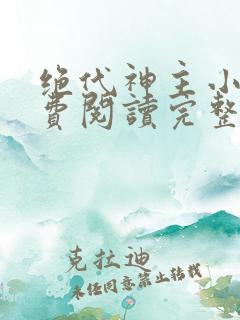 绝代神主小
費閱讀完整
克拉迪
未经同意禁止转载